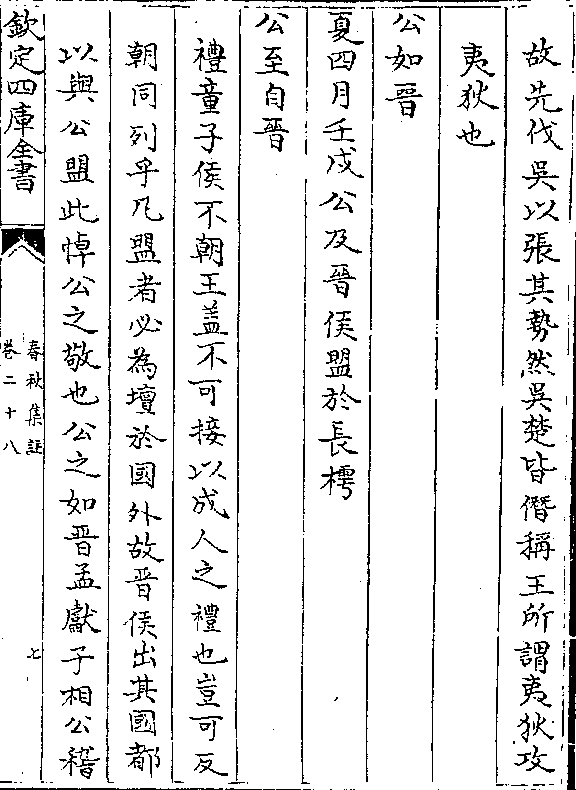 故先伐吳以張其勢然吳楚皆僭稱王所謂夷狄攻
夷狄也
公如晉
夏四月壬戌公及晉侯盟於長樗
公至自晉
禮童子侯不朝王盖不可接以成人之禮也豈可反
朝同列乎凡盟者必為壇於國外故晉侯出其國都
以與公盟此悼公之敬也公之如晉孟獻子相公稽
欽定四庫全書
春秋集註
卷二十八
七